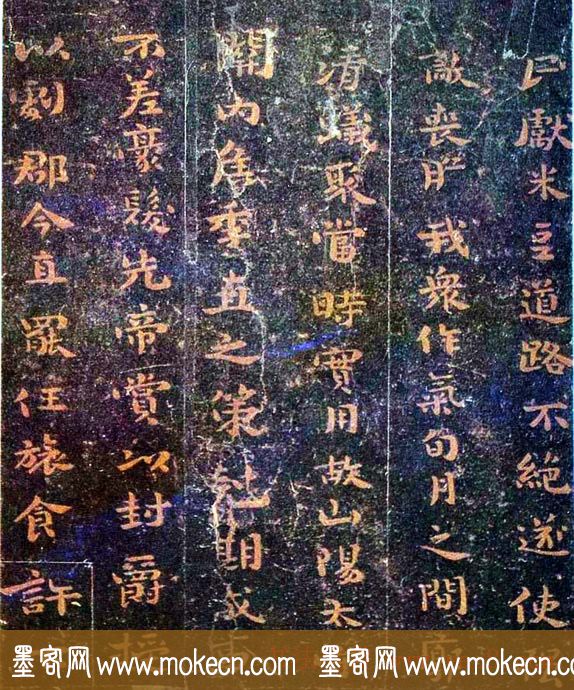 民獻米豆道路不絕遂使
敵喪膽我衆作氣旬月之間廓
清蟻聚當時實用故山陽太
關內侯季直之策尅期成事
不差豪髮先帝賞以封爵授
以劇郡今直罷任旅食許
墨客网 www.mokecn.com 墨客网 www.mokecn.com